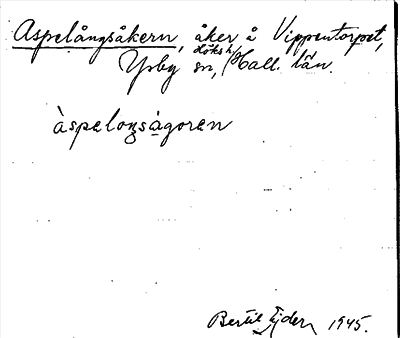 Aspelångsåkern, åker å Vippentorpet,
Ysby sn, Höks h/Hall. län.
àspelongságoren
Bertil Ejder 1945.